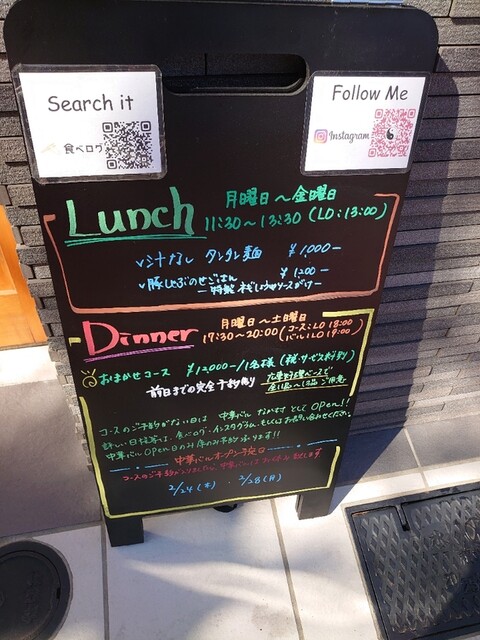 Search it
食べログ
Follow Me
Instagram
Lunch
月曜日～金曜日
11:30～13:30 (LO:13:00)
✓汁なし タンタン麺 ¥1,000-
✓豚しゃぶのせごはん ¥1,200-
Dinner
月曜日～土曜日
17:30～20:00
コース:LO 18:00
バル:LO 19:00
おまかせコース ¥12000-/1名様 (税・サービス料別)
前日までの完全予約制
コースのご予約がない日は 中華バル なかむら として OPEN!!
詳しい日程等は、食べログ・インスタグラム、もしくはお問い合わせください。
中華バル OPEN日のみ 席のみ予約承ります!!
中華バル オープン予定日
2/24(木) ・ 2/28(月)